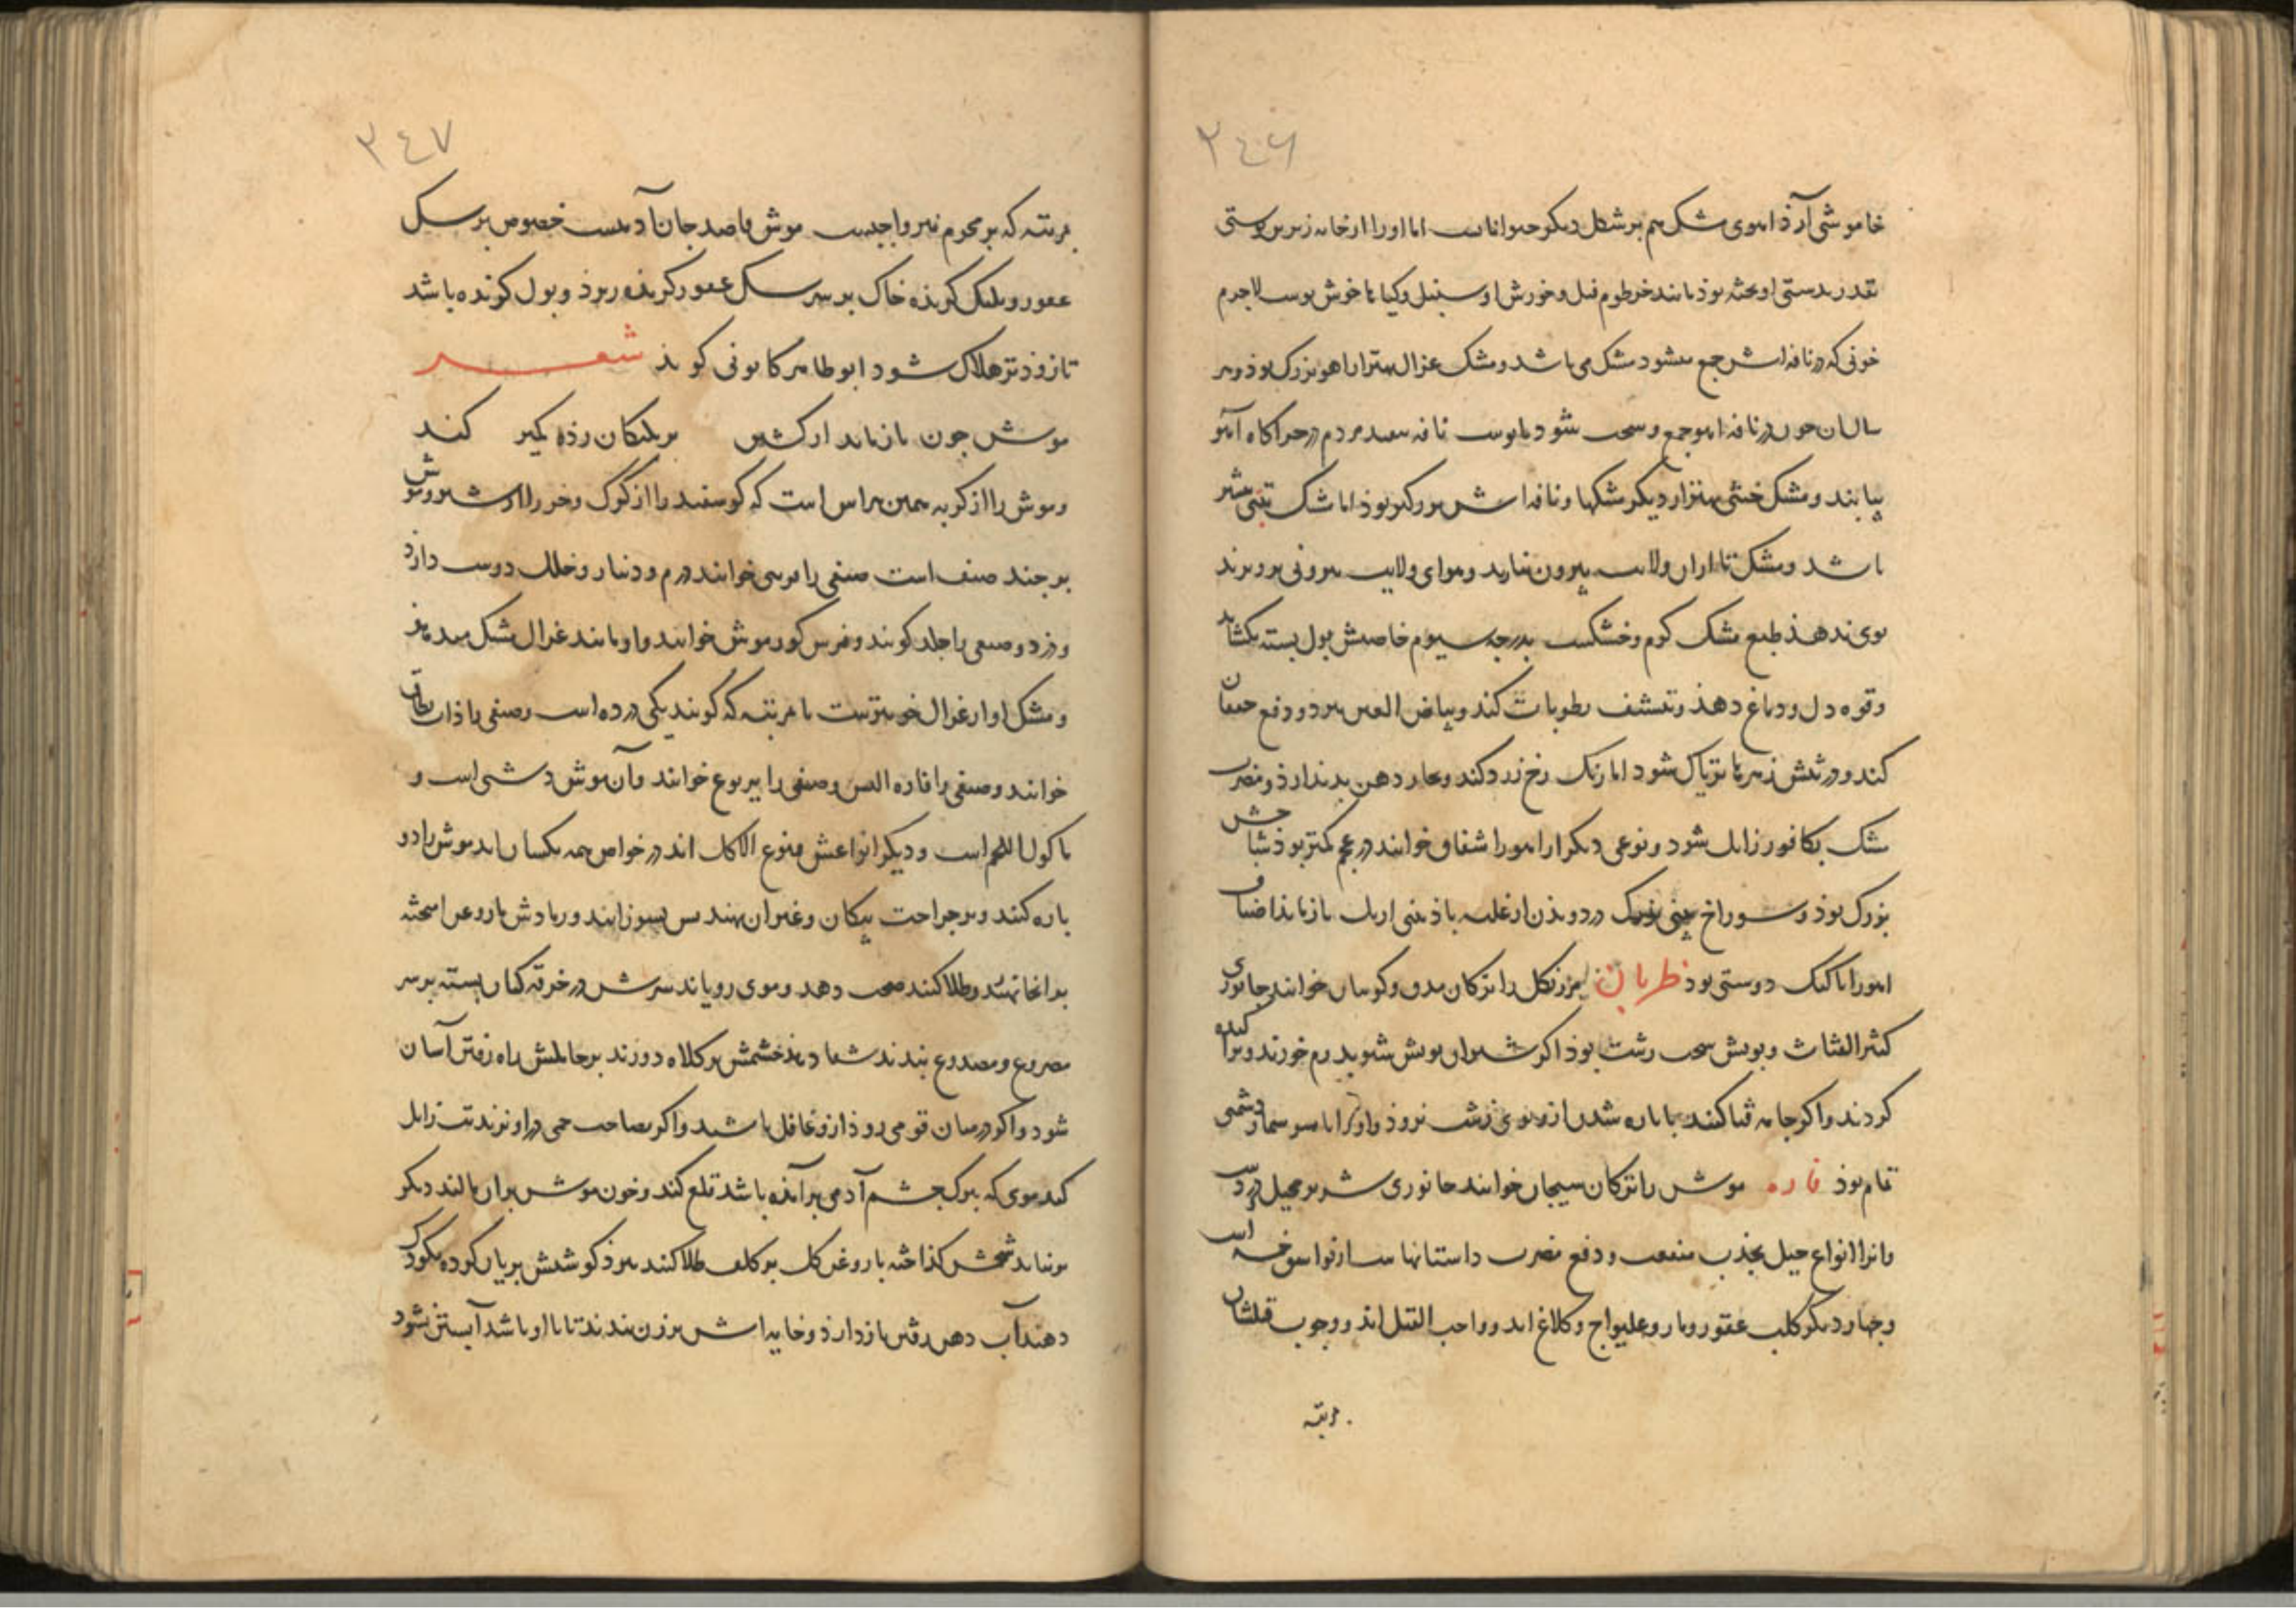 ۲٤٦
خاموشی آرذ اهوی مشک هم بر شکل دیکر حیواناتست اما اورا از خایه زیرین پوستی
بقدر بدستی اویخته بوذ مانند خرطوم فیل و خورش او سنبل و کیاها خوش بوست لاجرم
خونی که در نافه اش جمع میشود مشک می باشد و مشک غزال بهتر از اهو بزرک بوذ و هر
سالیان خون در نافه اهو جمع و سخت شود نافه مردم در چراکاه آهو
بیابند و مشک ختنی بهتر از دیکر مشکها و نافه اش بزرکتر بوذ اما مشک تبتی
باشد و مشک تا از ان ولایت بیرون نیارند و هوای ولایت بیرونی برو نزند
بوی ندهذ طبع مشک کرم و خشکست بدرجه سیوم خاصیتش بول بسته بکشاید
و قوه دل و دماغ دهذ و تنشف رطوبات کند و بیاض العین ببرد و دفع خفقان
کند و زهرها تریاک شود اما رنک رخ زرد کند و بخار دهن بدید ارذ و مضرت
مشک بکافور زایل شود و نوعی دیکر از اهو را خوانند در عجم کمتر بوذ شاخش
بزرک بوذ و سوراخ بینی بزرک در دویذن از غلبه باذ بینی از تک بازماند اصناف
اهو را با کبک دوستی بوذ ظربان ترکان خوانند جانوری
کثیر الفشا و بویش سخت زشت بوذ اکر شتران بویش شنوند رم خورند و پراکنده
کردند و اکر جامه قبا کنند با پاره شدن ازو بوی زشت نرود و او را با سوسمار دشمنی
تمام بوذ فاره موش را ترکان سیجان خوانند جانوری شریر محیل دزدست
و انرا انواع حیل بجذب منفعت و دفع مضرت داستانها است
و چهار دیکر کلب عقور و مار و غلیواج و کلاغ اند و واجب القتل اند و وجوب قتلشان
مرتبه
۳٤۷
بمرتبه که بر محرم نیز واجبست موش قاصد جان آدمیست خصوص بر سک
عقور و پلنک کزیذه خاک بر سر سک عقور کزیذه ریزد و بول کننده باشد
تا زوذتر هلاک شود ابو طاهر کوید شعر
موش چون باز ماند از کشتن بر پلنکان زده کمیز کند
و موش را از کربه همین هراس است که کوسفند را از کرک و خر را از شیر و موش
بر چند صنف است صنفی را خوانند درم و دینار و دوست دارد
و دزدد و صنفی را خلد کویند و فرس کور موش خوانند و او مانند غزال مشک میدهد
و مشک او از غزال خوبترست تا مرتبه که کویند یکی در ده است و صنفی را ذات نطاق
خوانند و صنفی را فاره البیش و صنفی را یربوع خوانند و آن موش دشتی است و
ماکول اللحم است و دیکر انواعش ممنوع الاکل اند در خواص همه یکسان اند موش را دو
پاره کنند و بر جراحت پیکان و غیر ان نهند پس بسوزانند و رمادش با روغن امیخته
بدانجا نهند و طلا کنند صحت دهد و موی رویاند سرش در خرقه کتان بسته بر سر
مصروع و مصدوع بندند شفا دهد چشمش بر کلاه دوزند بر حاملش راه رفتن آسان
شود و اکر در میان قومی روذ ازو غافل باشند و اکر بصاحب حمی دراویزند تب زایل
کند موی که ببرک چشم آدمی برآمذه باشد قلع کند و خون موش بران مالند دیکر
برنیاید شحمش کذاخته با روغن کل بر کلف طلا کنند ببرذ کوشتش بریان کرده بکودک
دهند آب دهن رفتن بازدارذ و خایه اش بر زن بندند تا با او باشد آبستن نشود